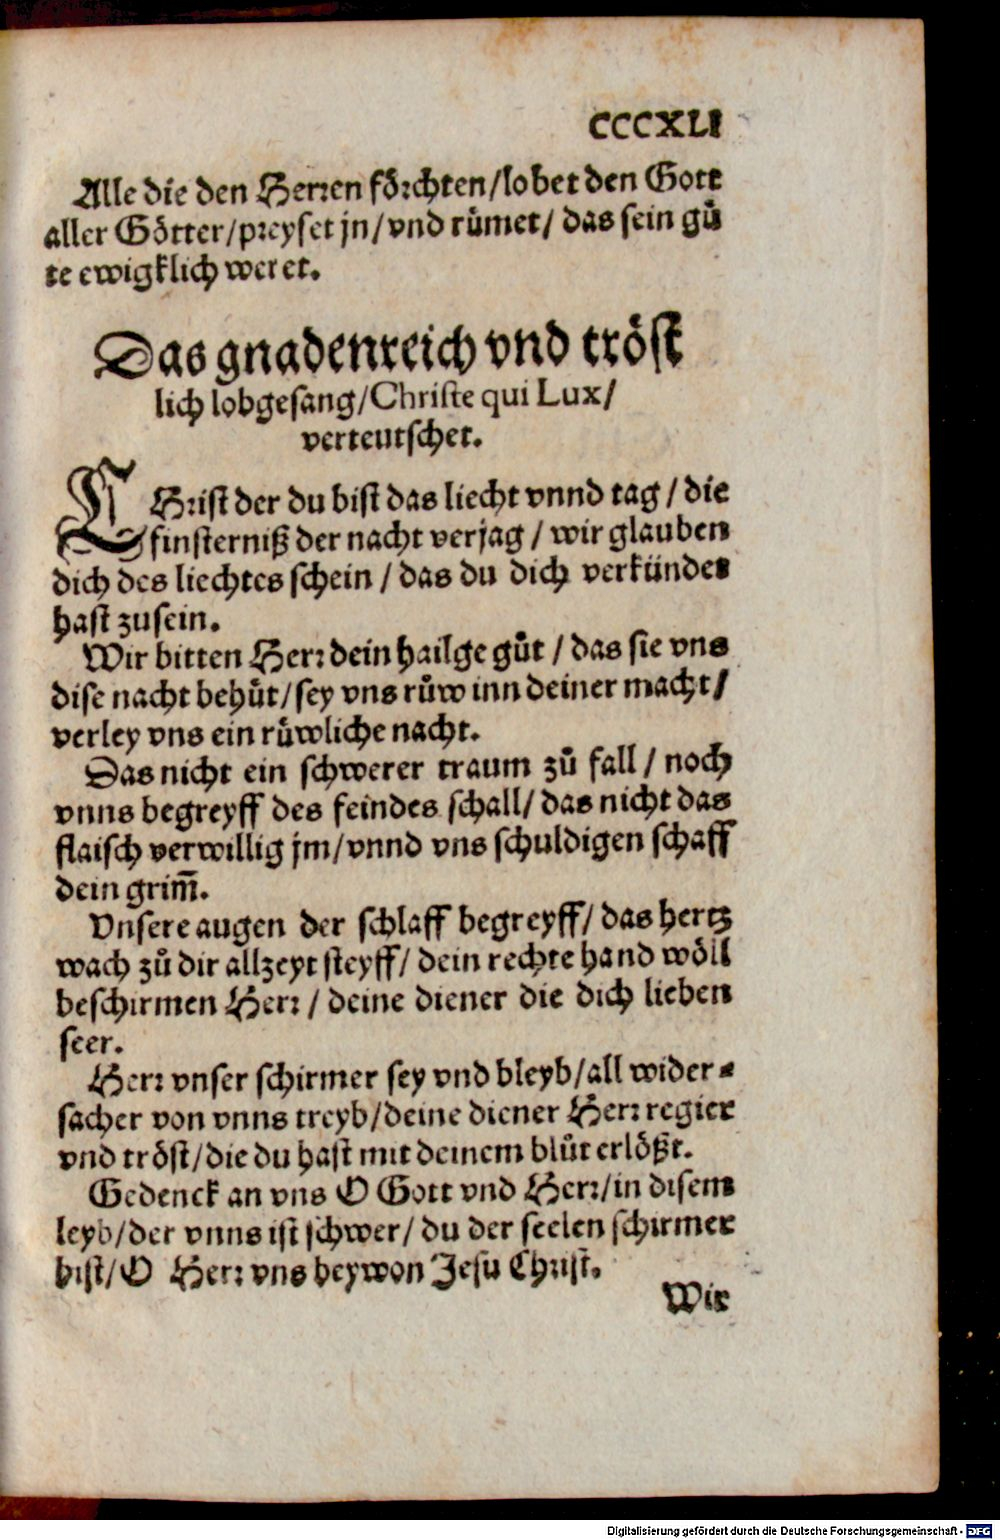 CCCXLI
Alle die den Herren förchten/lobet den Gott
aller Götter/preyset jn/vnd růmet/ das sein gů
te ewigklich weret.
Das gnadenreich vnd tröst
lich lobgesang/Christe qui Lux/
verteutschet.
CHrist der du bist das liecht vnnd tag / die
finsterniß der nacht verjag / wir glauben
dich des liechtes schein / das du dich verkündet
hast zusein.
Wir bitten Herr dein hailge gůt / das sie vns
dise nacht behůt/sey vns růw inn deiner macht/
verley vns ein růwliche nacht.
Das nicht ein schwerer traum zů fall / noch
vnns begreyff des feindes schall/ das nicht das
flaisch verwillig jm/vnnd vns schuldigen schaff
dein grim̄.
Vnsere augen der schlaff begreyff/ das hertz
wach zů dir allzeyt steyff/ dein rechte hand wöll
beschirmen Herr / deine diener die dich lieben
seer.
Herr vnser schirmer sey vnd bleyb/all wider⸗
sacher von vnns treyb/deine diener Herr regier
vnd tröst/die du hast mit deinem blůt erlößt.
Gedenck an vns O Gott vnd Herr/in disem
leyb/der vnns ist schwer/ du der seelen schirmer
bist/O Herr vns beywon Jesu Christ.
Wir
Digitalisierung gefördert durch die Deutsche Forschungsgemeinschaft - DFG